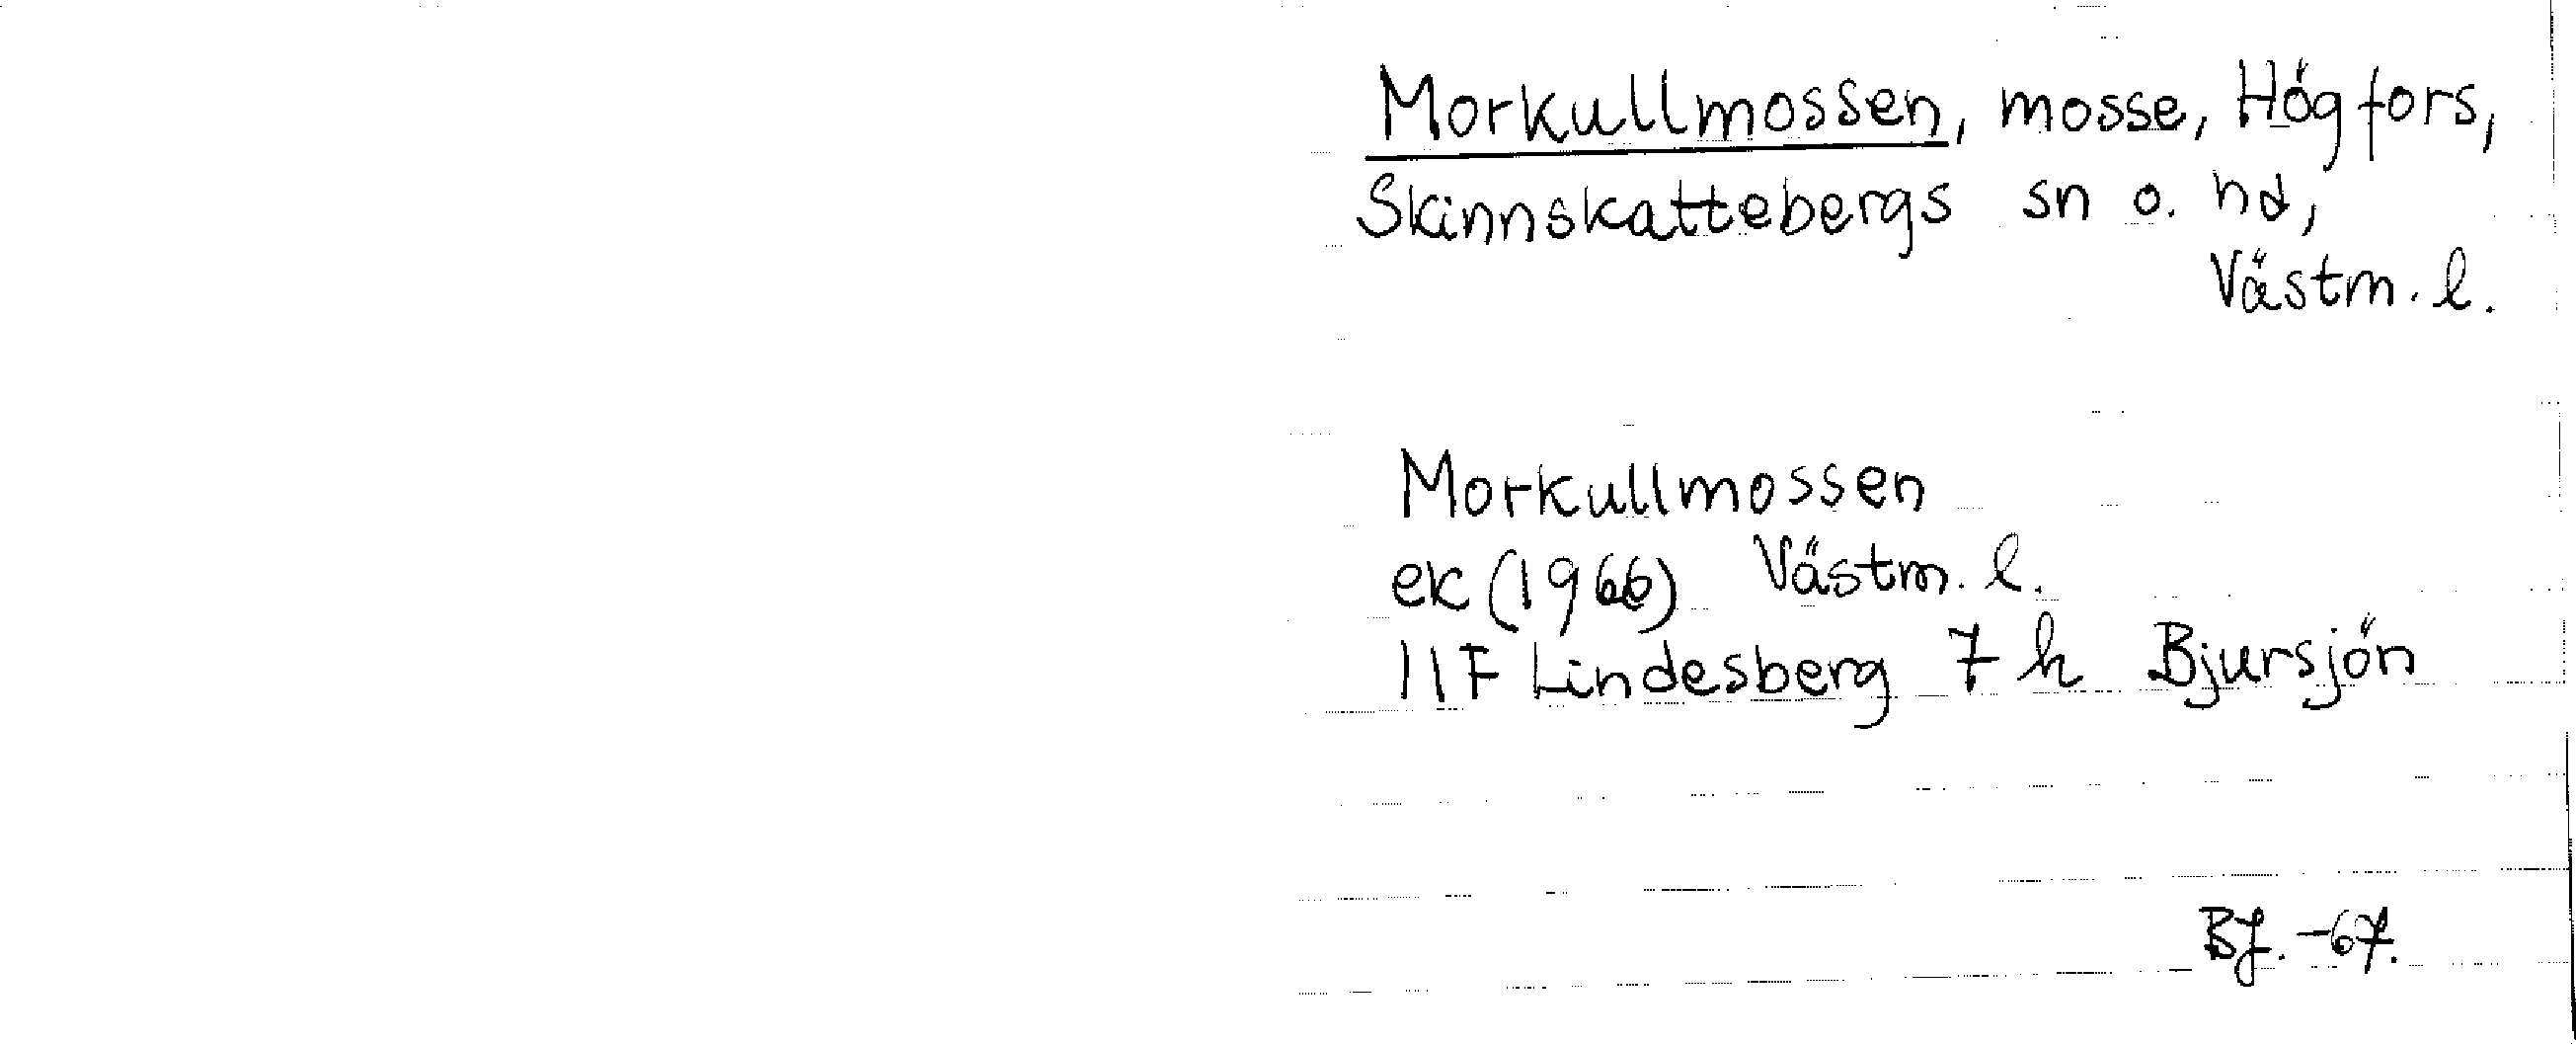 Morkullmossen, mosse, Högfors,
Skinnskattebergs sn o. hd,
Västm. l.
Morkullmossen
ek (1966) Västm. l.
11F Lindesberg 7 h Bjursjön
BJ. -67.